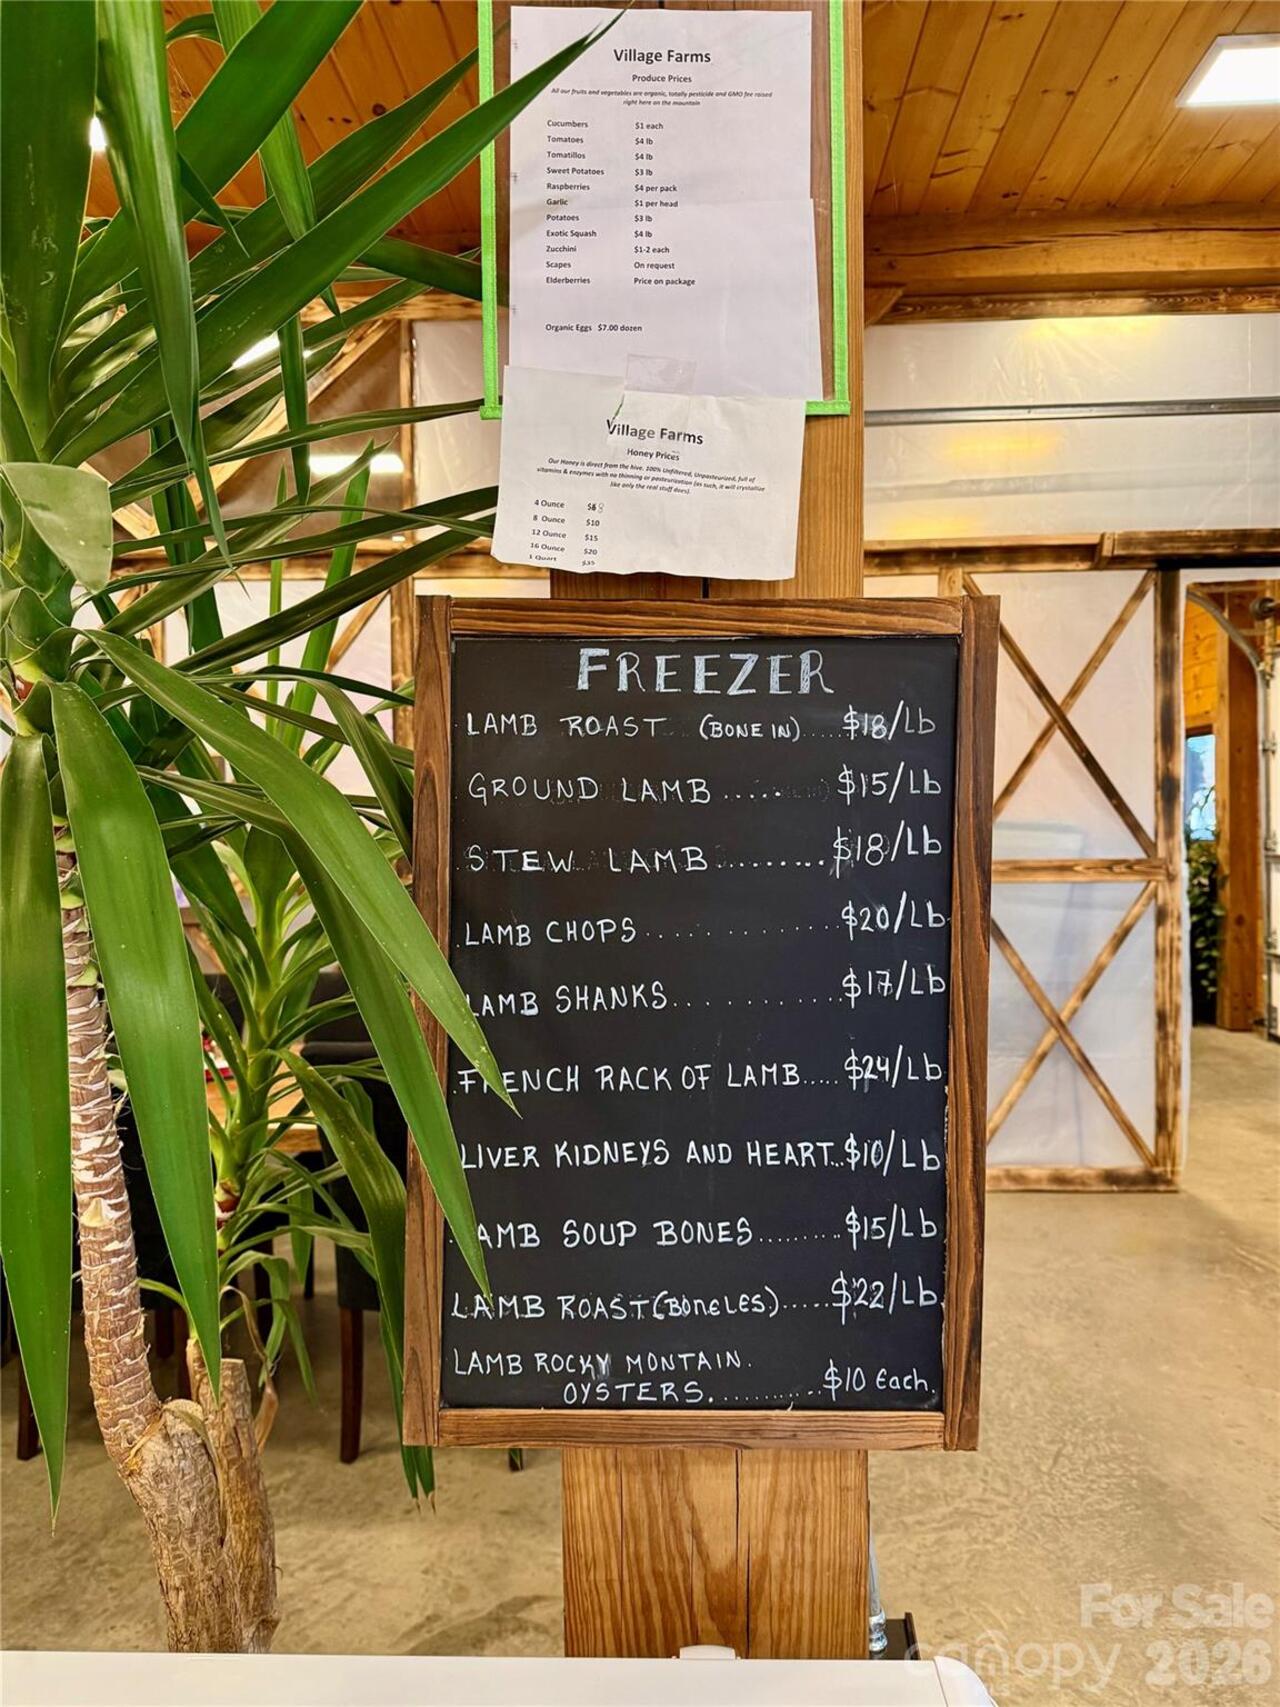 Village Farms
Produce Prices
All our fruits and vegetables are organic, totally pesticide and GMO fee raised
right here on the mountain
Cucumbers $1 each
Tomatoes $4 lb
Tomatillos $4 lb
Sweet Potatoes $3 lb
Raspberries $4 per pack
Garlic $1 per head
Potatoes $3 lb
Exotic Squash $4 lb
Zucchini $1-2 each
Scapes On request
Elderberries Price on package
Organic Eggs $7.00 dozen
Village Farms
Honey Prices
Our Honey is direct from the hive. 100% Unfiltered, Unpasteurized, full of
vitamins & enzymes with no thinning or pasteurization (as such, it will crystallize
like only the real stuff does).
4 Ounce $8
8 Ounce $10
12 Ounce $15
16 Ounce $20
1 Quart $35
FREEZER
LAMB ROAST (BONE IN).....$18/Lb
GROUND LAMB.....$15/Lb
STEW LAMB........$18/Lb
LAMB CHOPS.............$20/Lb
LAMB SHANKS............$17/Lb
FRENCH RACK OF LAMB.....$24/Lb
LIVER KIDNEYS AND HEART..$10/Lb
LAMB SOUP BONES.........$15/Lb
LAMB ROAST (BONELES).....$22/Lb
LAMB ROCKY MONTAIN.
OYSTERS............$10 Each.
For Sale
canopy 2026